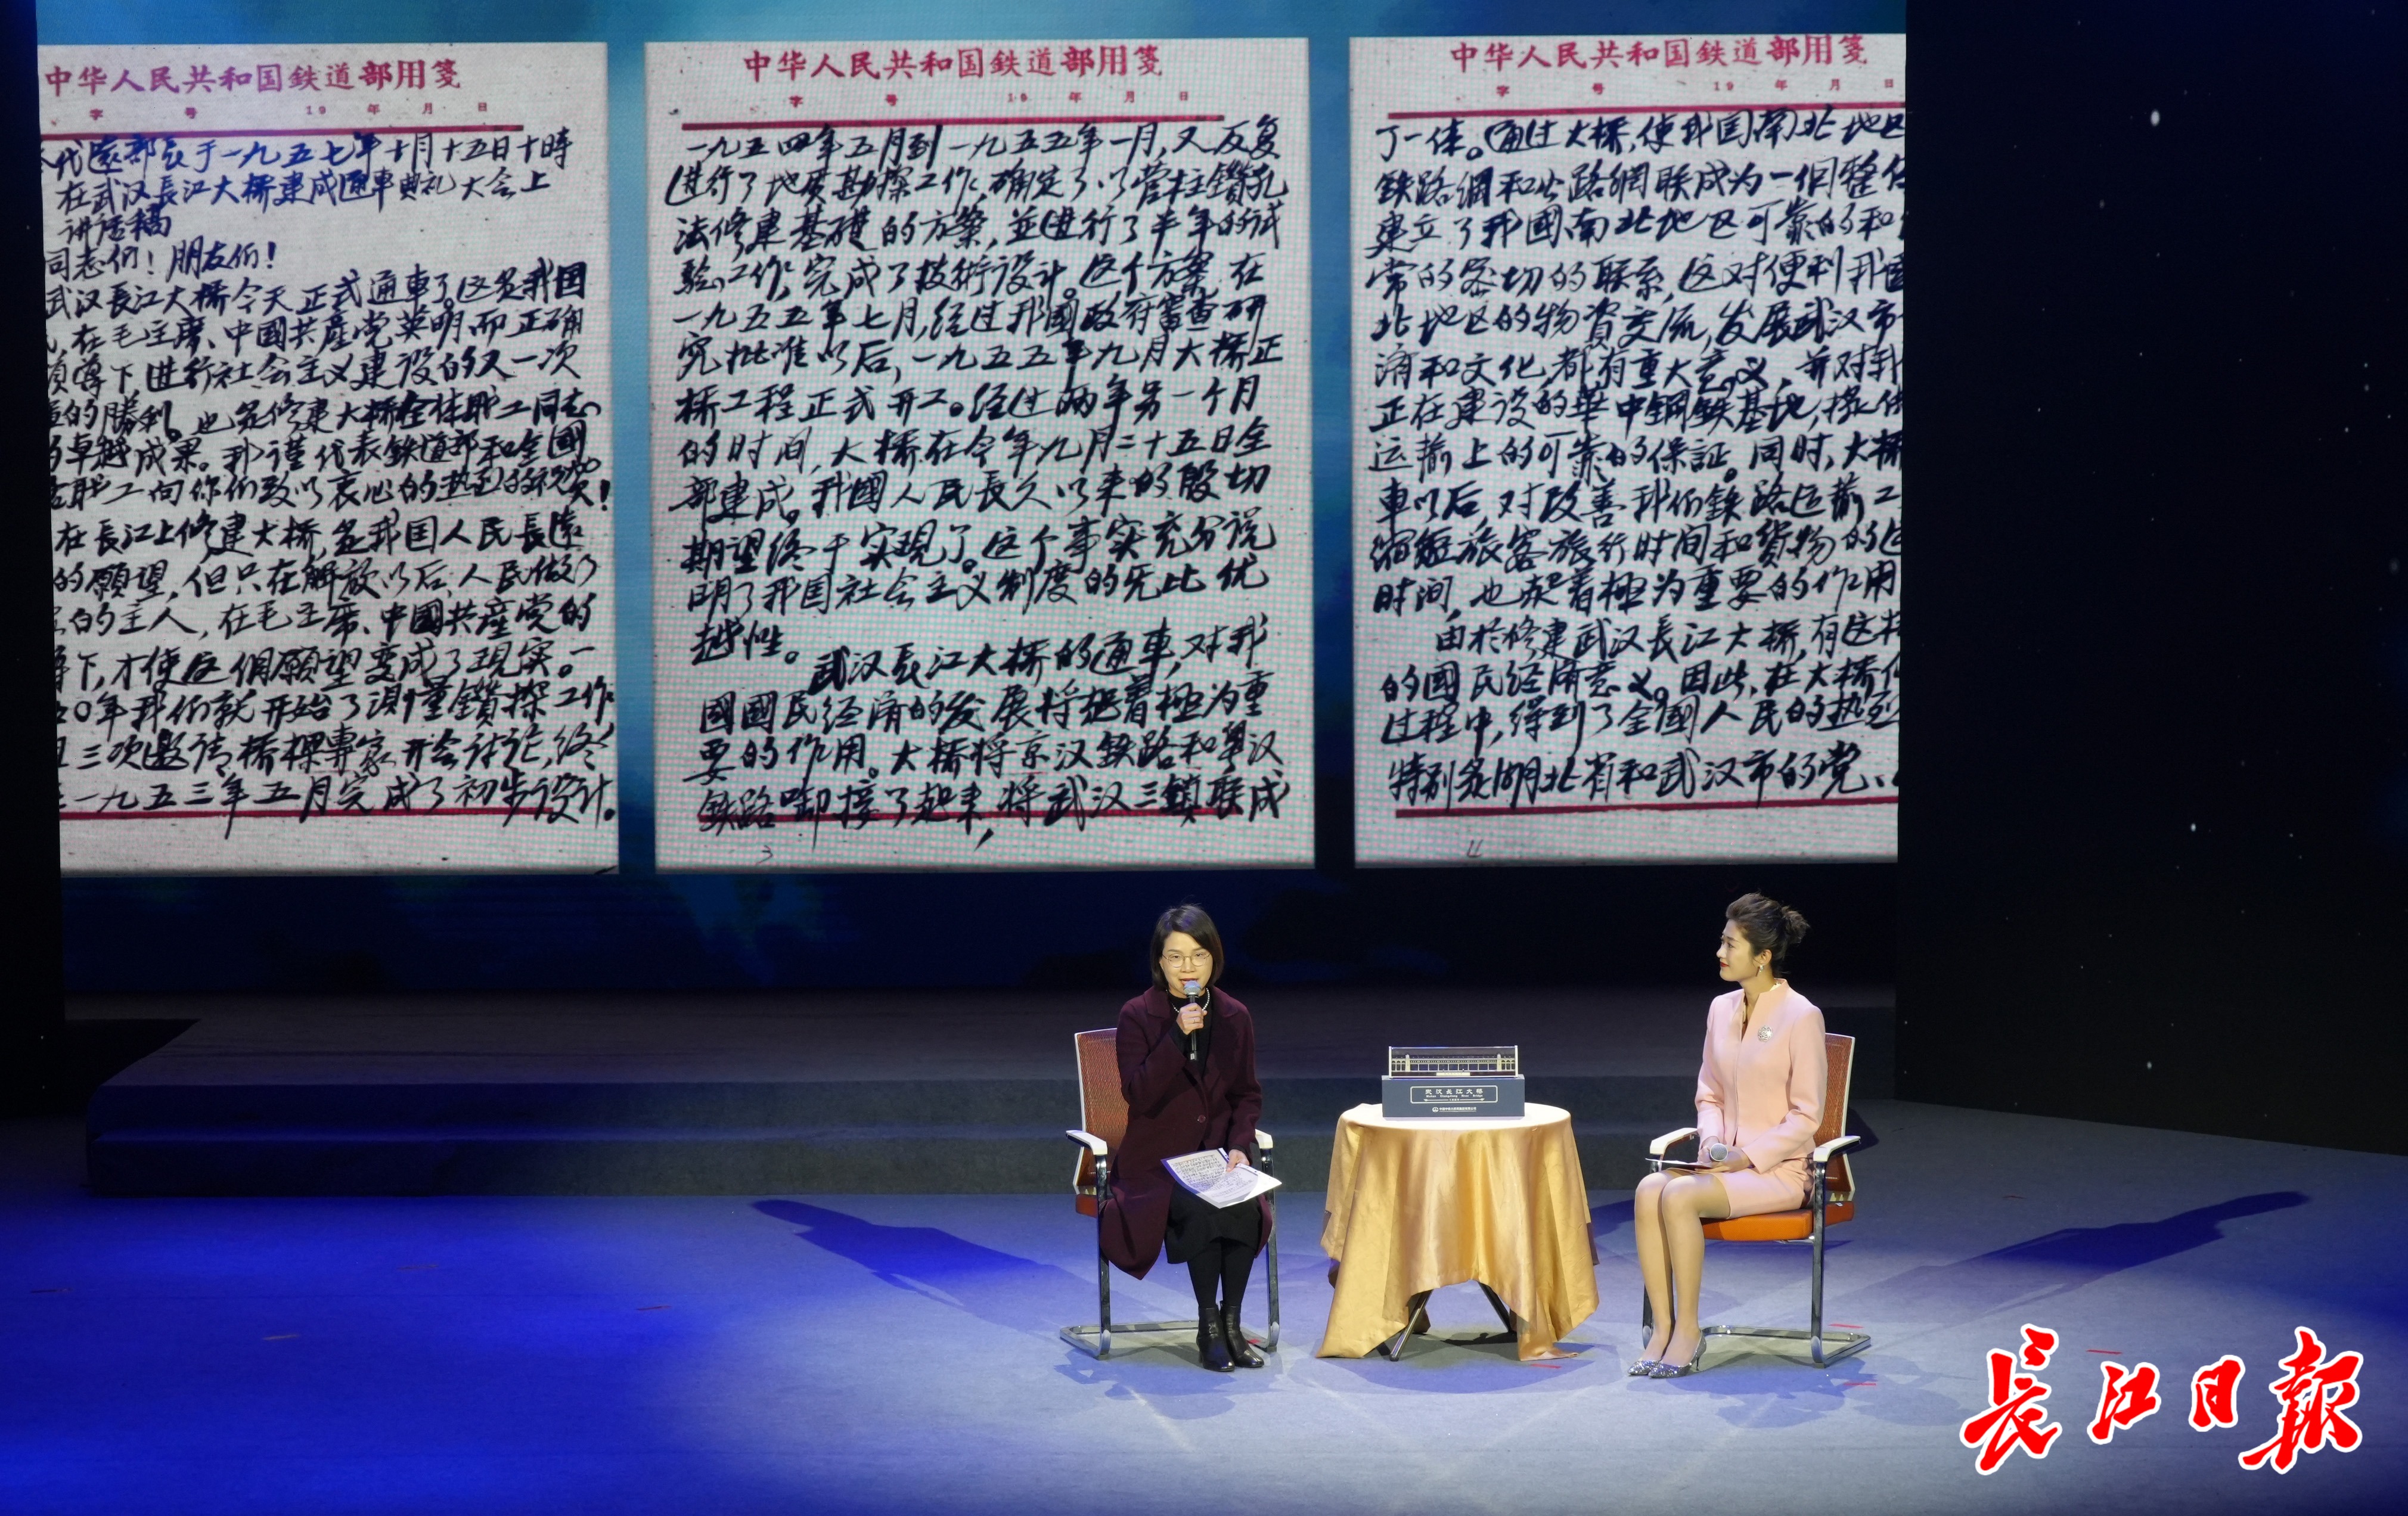 中华人民共和国鉄道部用箋
字 号 19 年 月 日
代远部長于一九五七年十月十五日十時
在武汉長江大桥建成通車典礼大会上
讲话稿
同志们！朋友们！
武汉長江大桥今天正式通車了。这是我国
在毛主席、中國共産党英明而正确
領導下，进行社会主义建设的又一次
的勝利。也是修建大桥全体职工同志
的卓越成果。我謹代表鉄道部和全國
职工向你们致以衷心的热烈的祝贺！
在長江上修建大桥，是我国人民長远
的願望，但只在解放以后，人民做了
的主人，在毛主席、中國共産党的
下，才使这個願望变成了現实。一
五〇年我们就开始了測量鑽探工作
三次邀请桥樑專家开会讨论，終
一九五三年五月完成了初步设计。
中华人民共和国鉄道部用箋
字 号 19 年 月 日
一九五四年五月到一九五五年一月，又反复
进行了地质勘探工作，确定了以管柱鑽孔
法修建基礎的方案，並进行了半年的试
验工作，完成了技術设计。这个方案，在
一九五五年七月，经过我國政府審查研
究批准以后，一九五五年九月大桥正
桥工程正式开工。经过两年另一个月
的时间，大桥在今年九月二十五日全
部建成。我國人民長久以来的殷切
期望终于实現了。这个事实充分说
明了我国社会主义制度的无比优
越性。
武汉長江大桥的通車，对我
國國民经济的发展将起着極为重
要的作用。大桥将京汉鉄路和粤汉
鉄路啣接了起来，将武汉三鎮联成
3
中华人民共和国鉄道部用箋
字 号 19 年 月 日
了一体。通过大桥，使我国南北地区
鉄路網和公路網联成为一個整体
建立了我國南北地区可靠的和
常的密切的联系，这对便利我国
北地区的物資交流，发展武汉市
济和文化，都有重大意义，并对我
正在建设的華中鋼鉄基地，提供
运輸上的可靠的保証。同时，大桥
車以后，对改善我们鉄路运輸工
缩短旅客旅行时间和貨物的
时间，也起着極为重要的作用
由於修建武汉長江大桥，有这样
的國民经济意义。因此，在大桥修
过程中，得到了全國人民的热烈
特别是湖北省和武汉市的党、
4
武汉长江大桥
Wuhan Changjiang River Bridge
長江日報